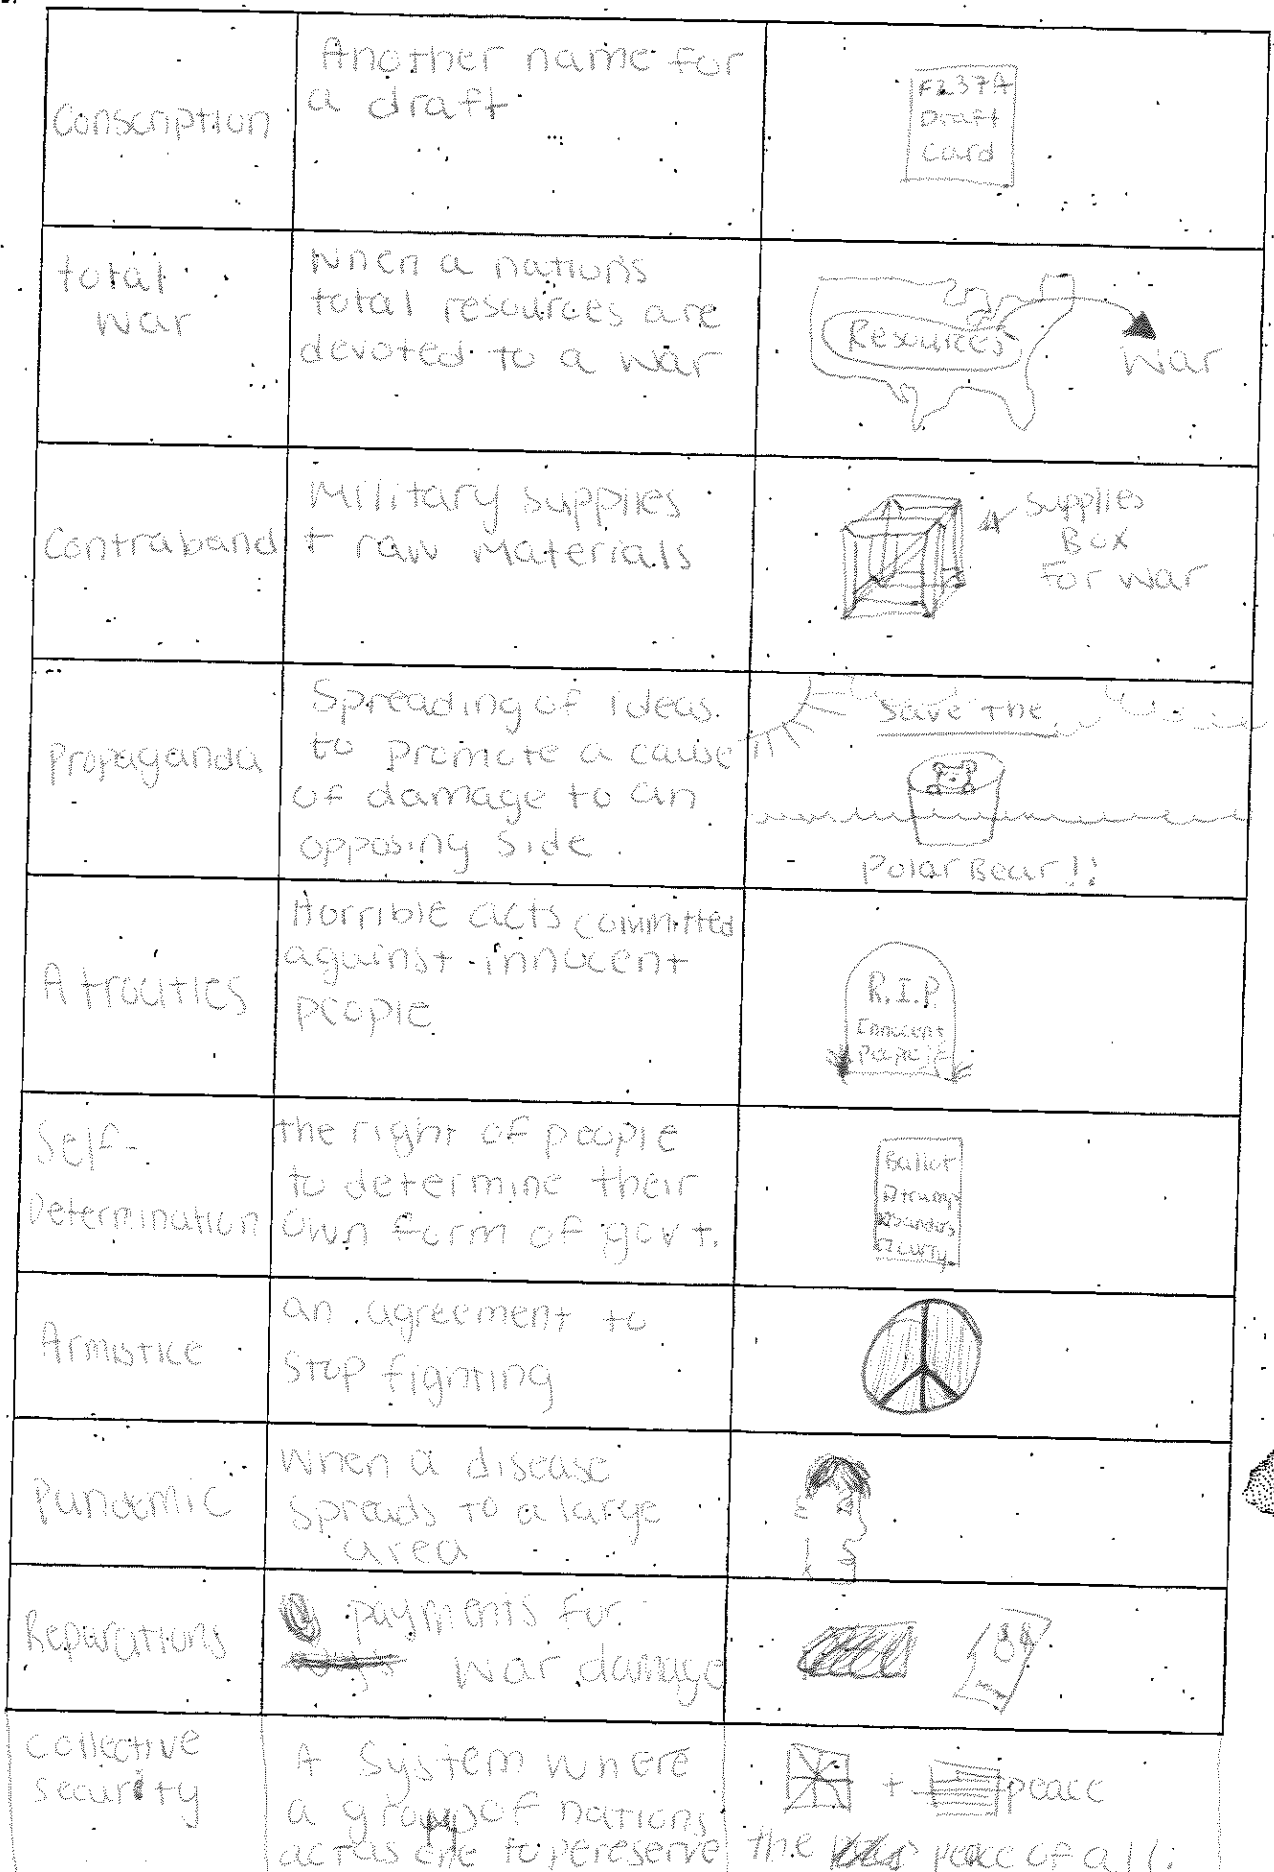 Conscription
Another name for
a draft
F237A
Draft
Card
total
war
When a nations
total resources are
devoted to a war
Resources
War
Contraband
Military supplies
+ raw materials
Supplies
Box
For war
Propaganda
Spreading of ideas
to promote a cause
of damage to an
opposing side.
Save the
Polar Bear!!
Atrocities
Horrible acts committed
against innocent
people
R.I.P.
Innocent
People
Self-
Determination
the right of people
to determine their
own form of govt.
Ballot
Armistice
an agreement to
stop fighting
Pandemic
When a disease
spreads to a large
area
Reparations
payments for
war damage
Collective
security
A system where
a group of nations
act as one to pereserve the peace of all.
+ peace